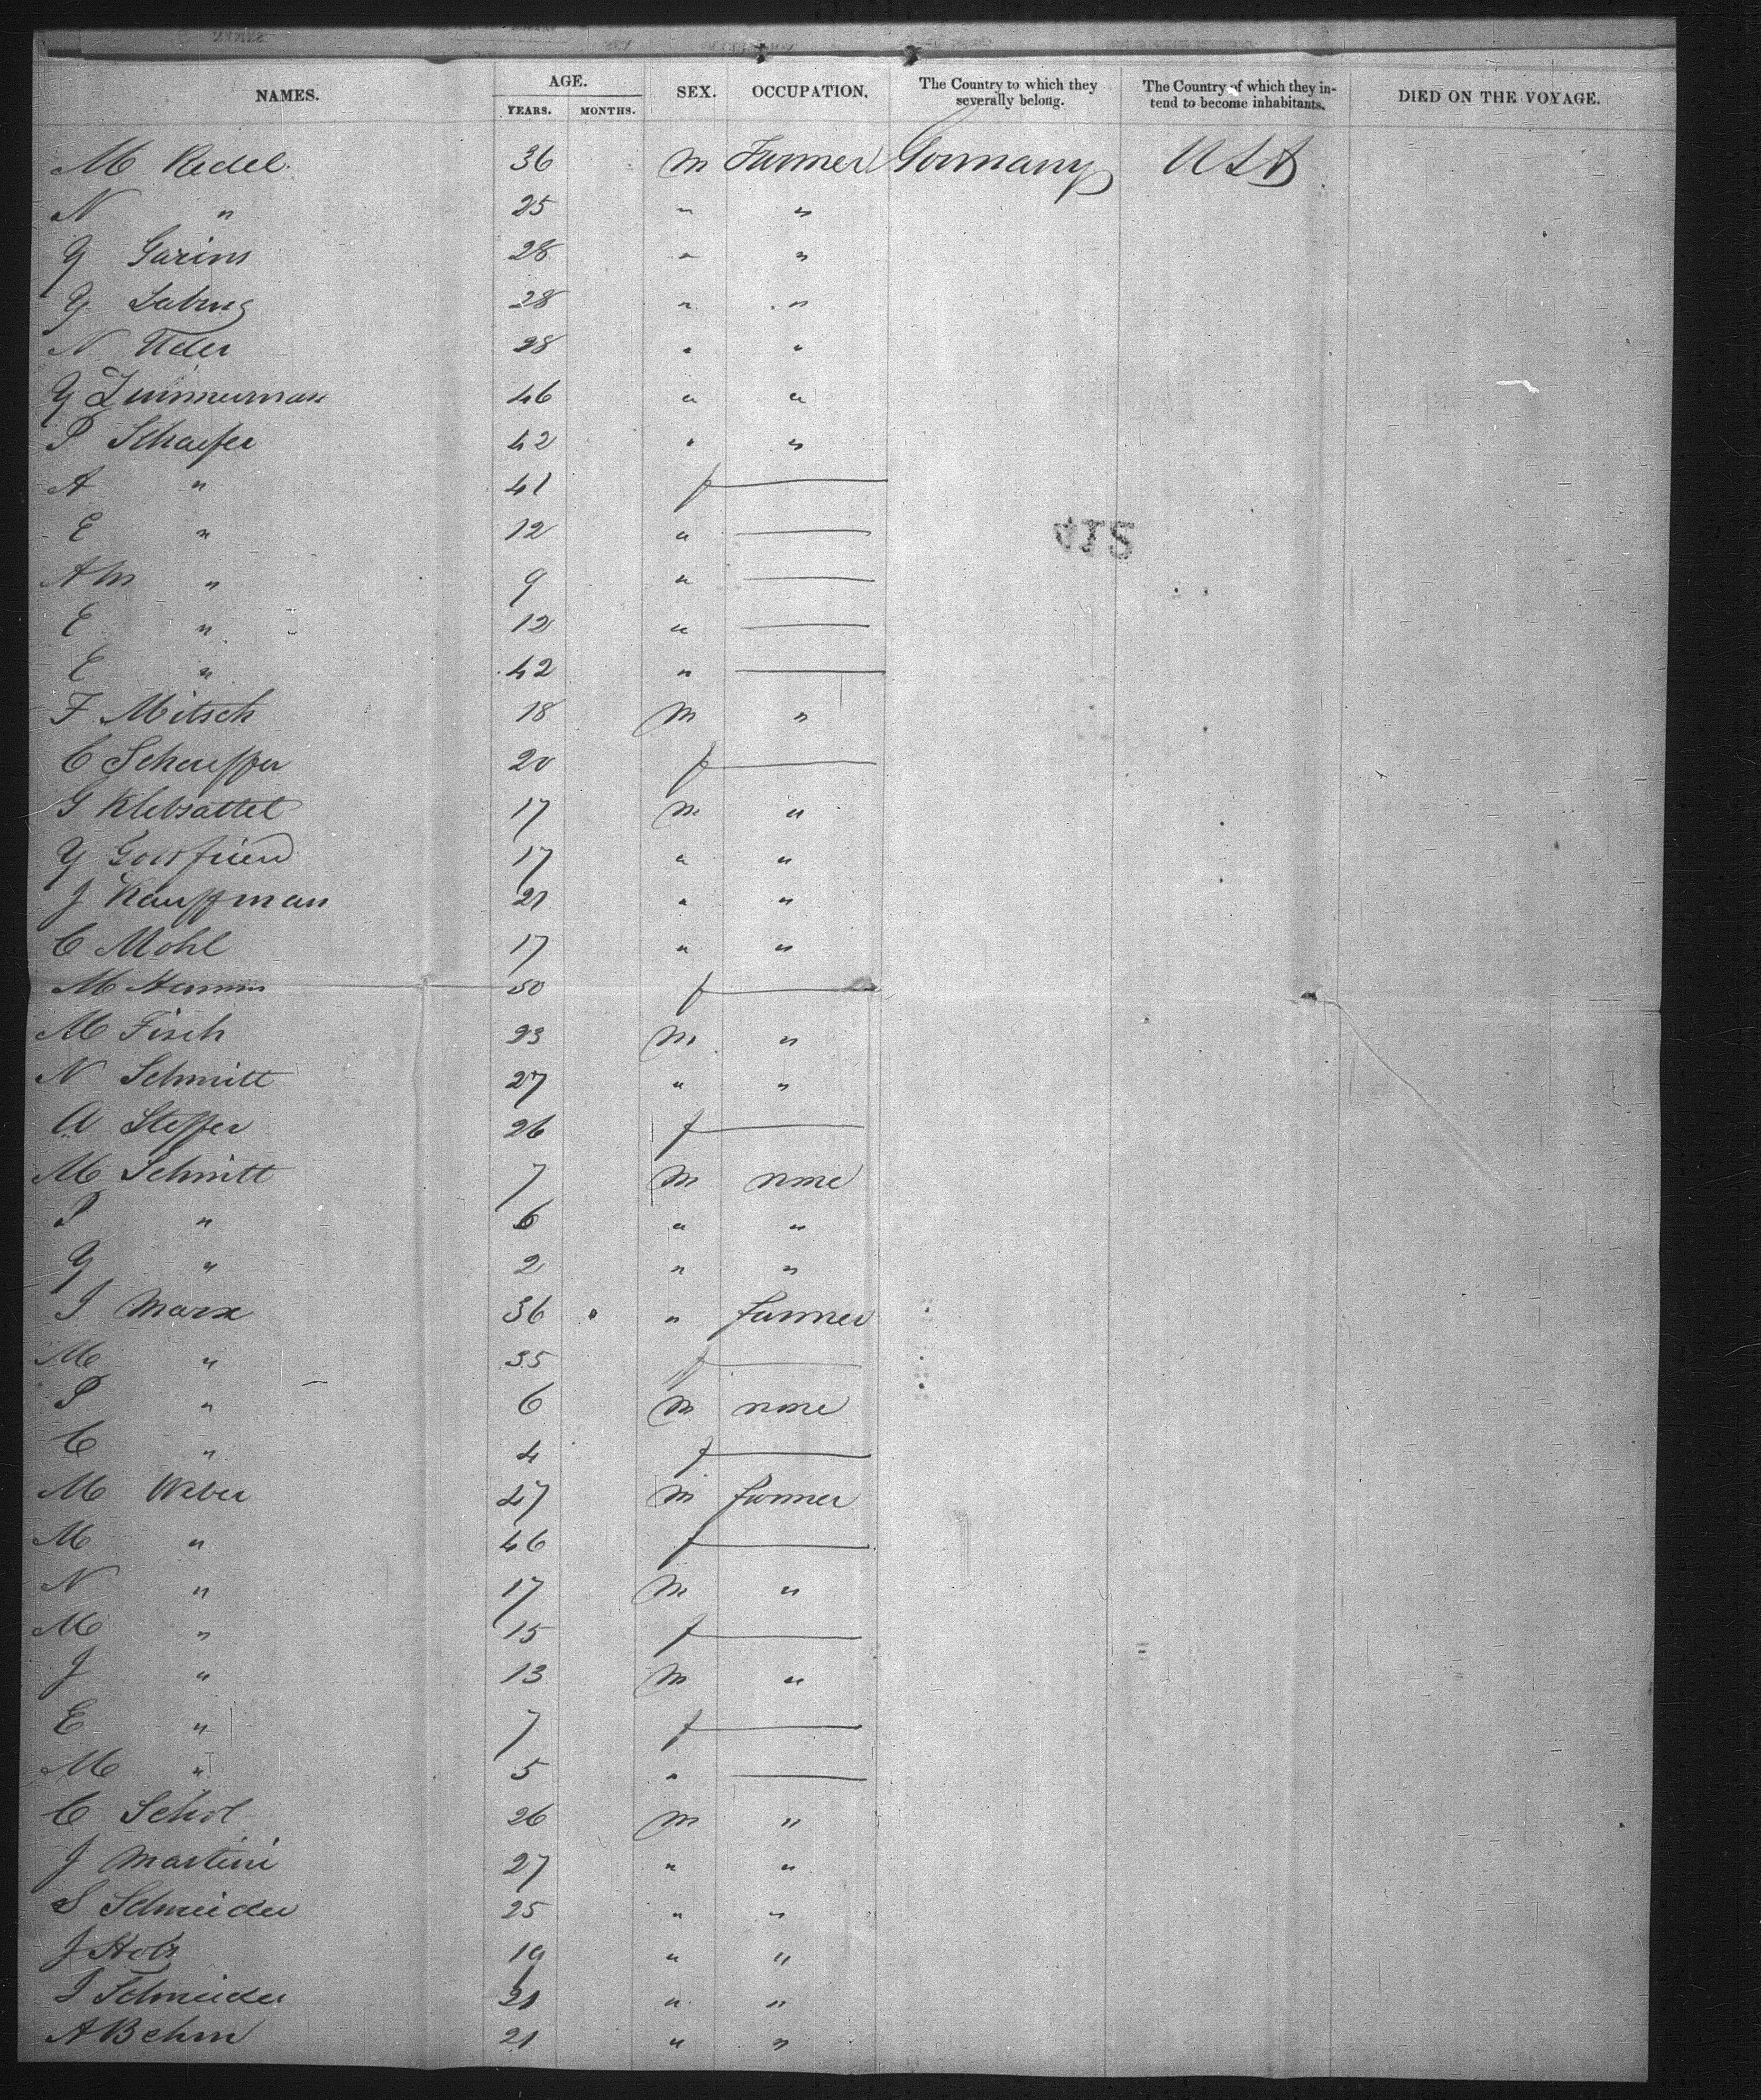 NAMES. AGE. SEX. OCCUPATION. The Country to which they severally belong. The Country of which they intend to become inhabitants. DIED ON THE VOYAGE.
YEARS. MONTHS.
M Redel 36 m Farmer Germany USA
N " 25 " "
G Garins 28 " "
G 28 " "
N Uder 28 " "
G Zimmerman 46 " "
P Schaefer 42 " "
A " 41 f —
E " 12 " —
AM " 9 " —
E " 12 " —
E " 42 " —
F Mitsch 18 m "
C Scheuffer 20 f —
G Klebsattel 17 m "
G Gottfried 17 " "
J Kauffman 21 " "
C Mohl 17 " "
M 50 f —
M Fisch 23 m "
N Schmitt 27 " "
A Steffer 26 f —
M Schmitt 7 m none
P " 6 " "
G " 2 " "
J Marx 36 " farmer
M " 35 f —
P " 6 m none
C " 4 f —
M Weber 47 m farmer
M " 46 f —
N " 17 m "
M " 15 f —
J " 13 m "
E " 7 f —
M " 5 " —
C Schol 26 m "
J Martini 27 " "
S Schneider 25 " "
J Holz 19 " "
J Schneider 21 " "
A Behm 21 " "